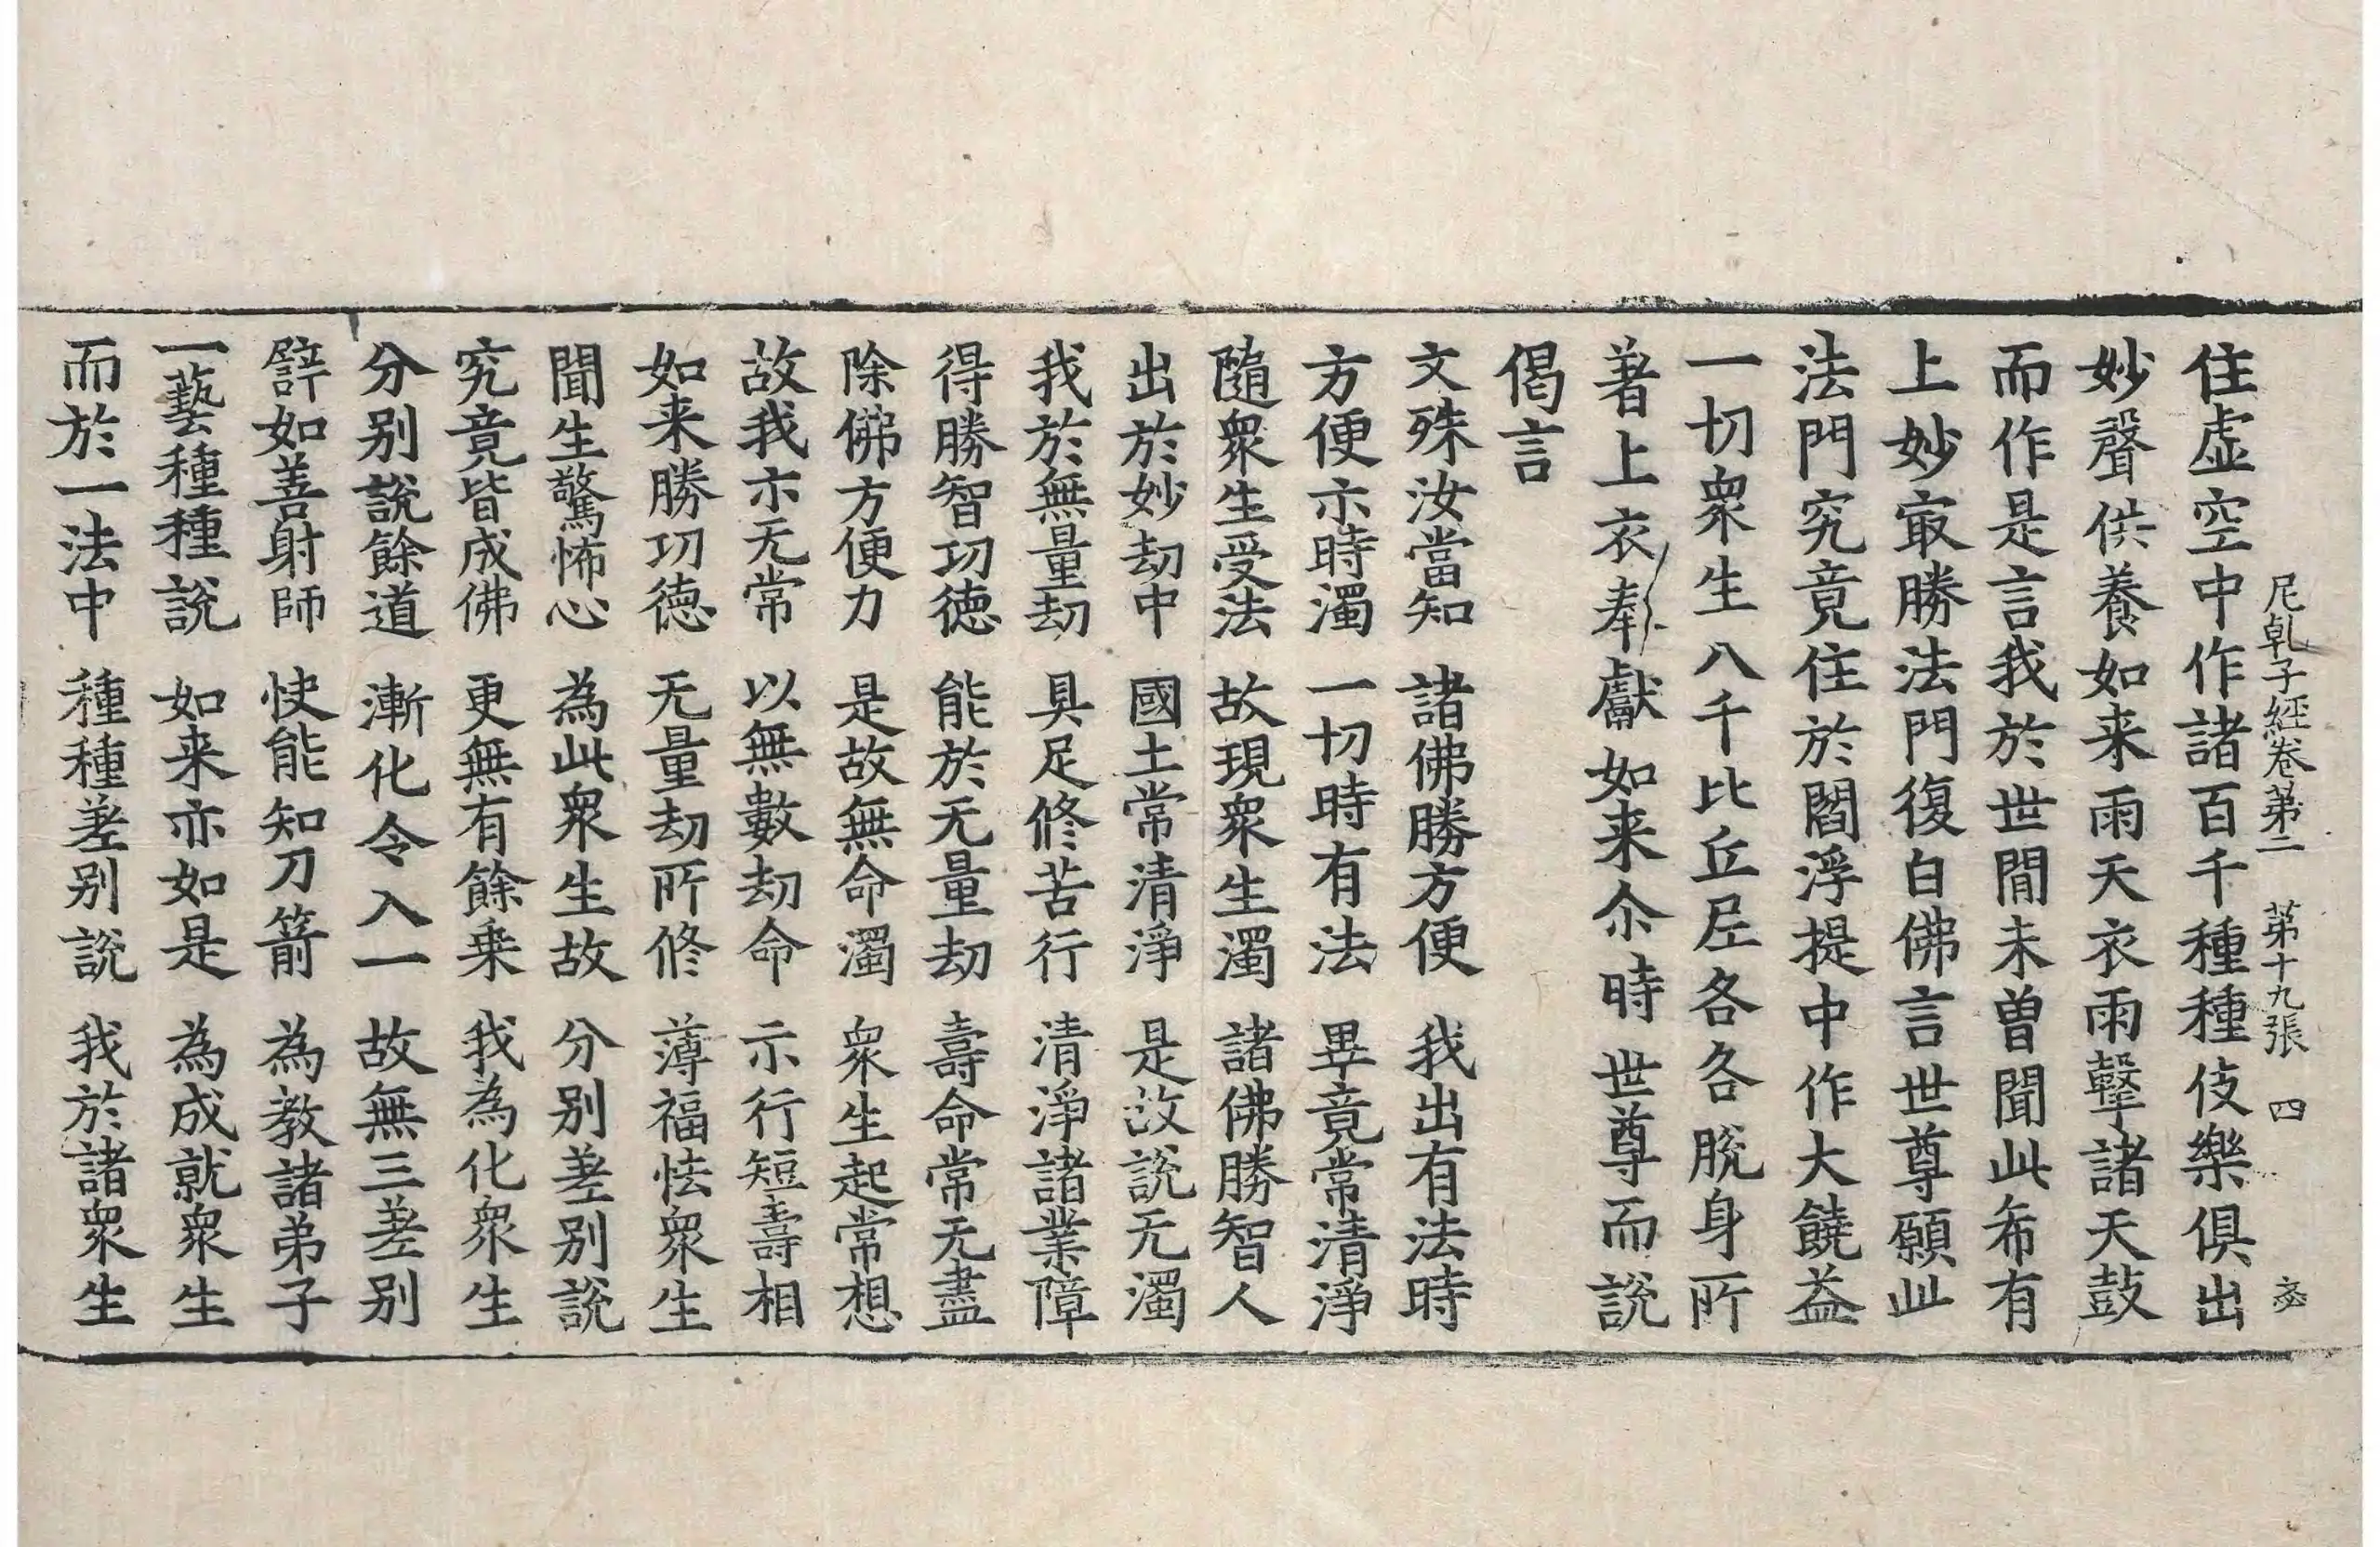 尼乹子經卷第二　第十九張　四
住虛空中作諸百千種種伎樂俱出
妙聲供養如来雨天衣雨鼙諸天鼓
而作是言我於世間未曾聞此希有
上妙㝡勝法門復白佛言世尊願此
法門究竟住於閻浮提中作大饒益
一切衆生八千比丘尼各各脫身所
著上衣奉獻如来尒時世尊而説
偈言
文殊汝當知　諸佛勝方便　我出有法時
方便示時濁　一切時有法　畢竟常清淨
隨衆生受法　故現衆生濁　諸佛勝智人
出於妙劫中　國土常清淨　是故説无濁
我於無量劫　具足修苦行　清淨諸業障
得勝智功德　能於无量劫　壽命常无盡
除佛方便力　是故無命濁　衆生起常想
故我示无常　以無數劫命　示行短壽相
如来勝功德　无量劫所修　薄福怯衆生
聞生驚怖心　為此衆生故　分别差别説
究竟皆成佛　更無有餘乗　我為化衆生
分别説餘道　漸化令入一　故無三差别
譬如善射師　快能知刀箭　為教諸弟子
一藝種種説　如来亦如是　為成就衆生
而於一法中　種種差别説　我於諸衆生